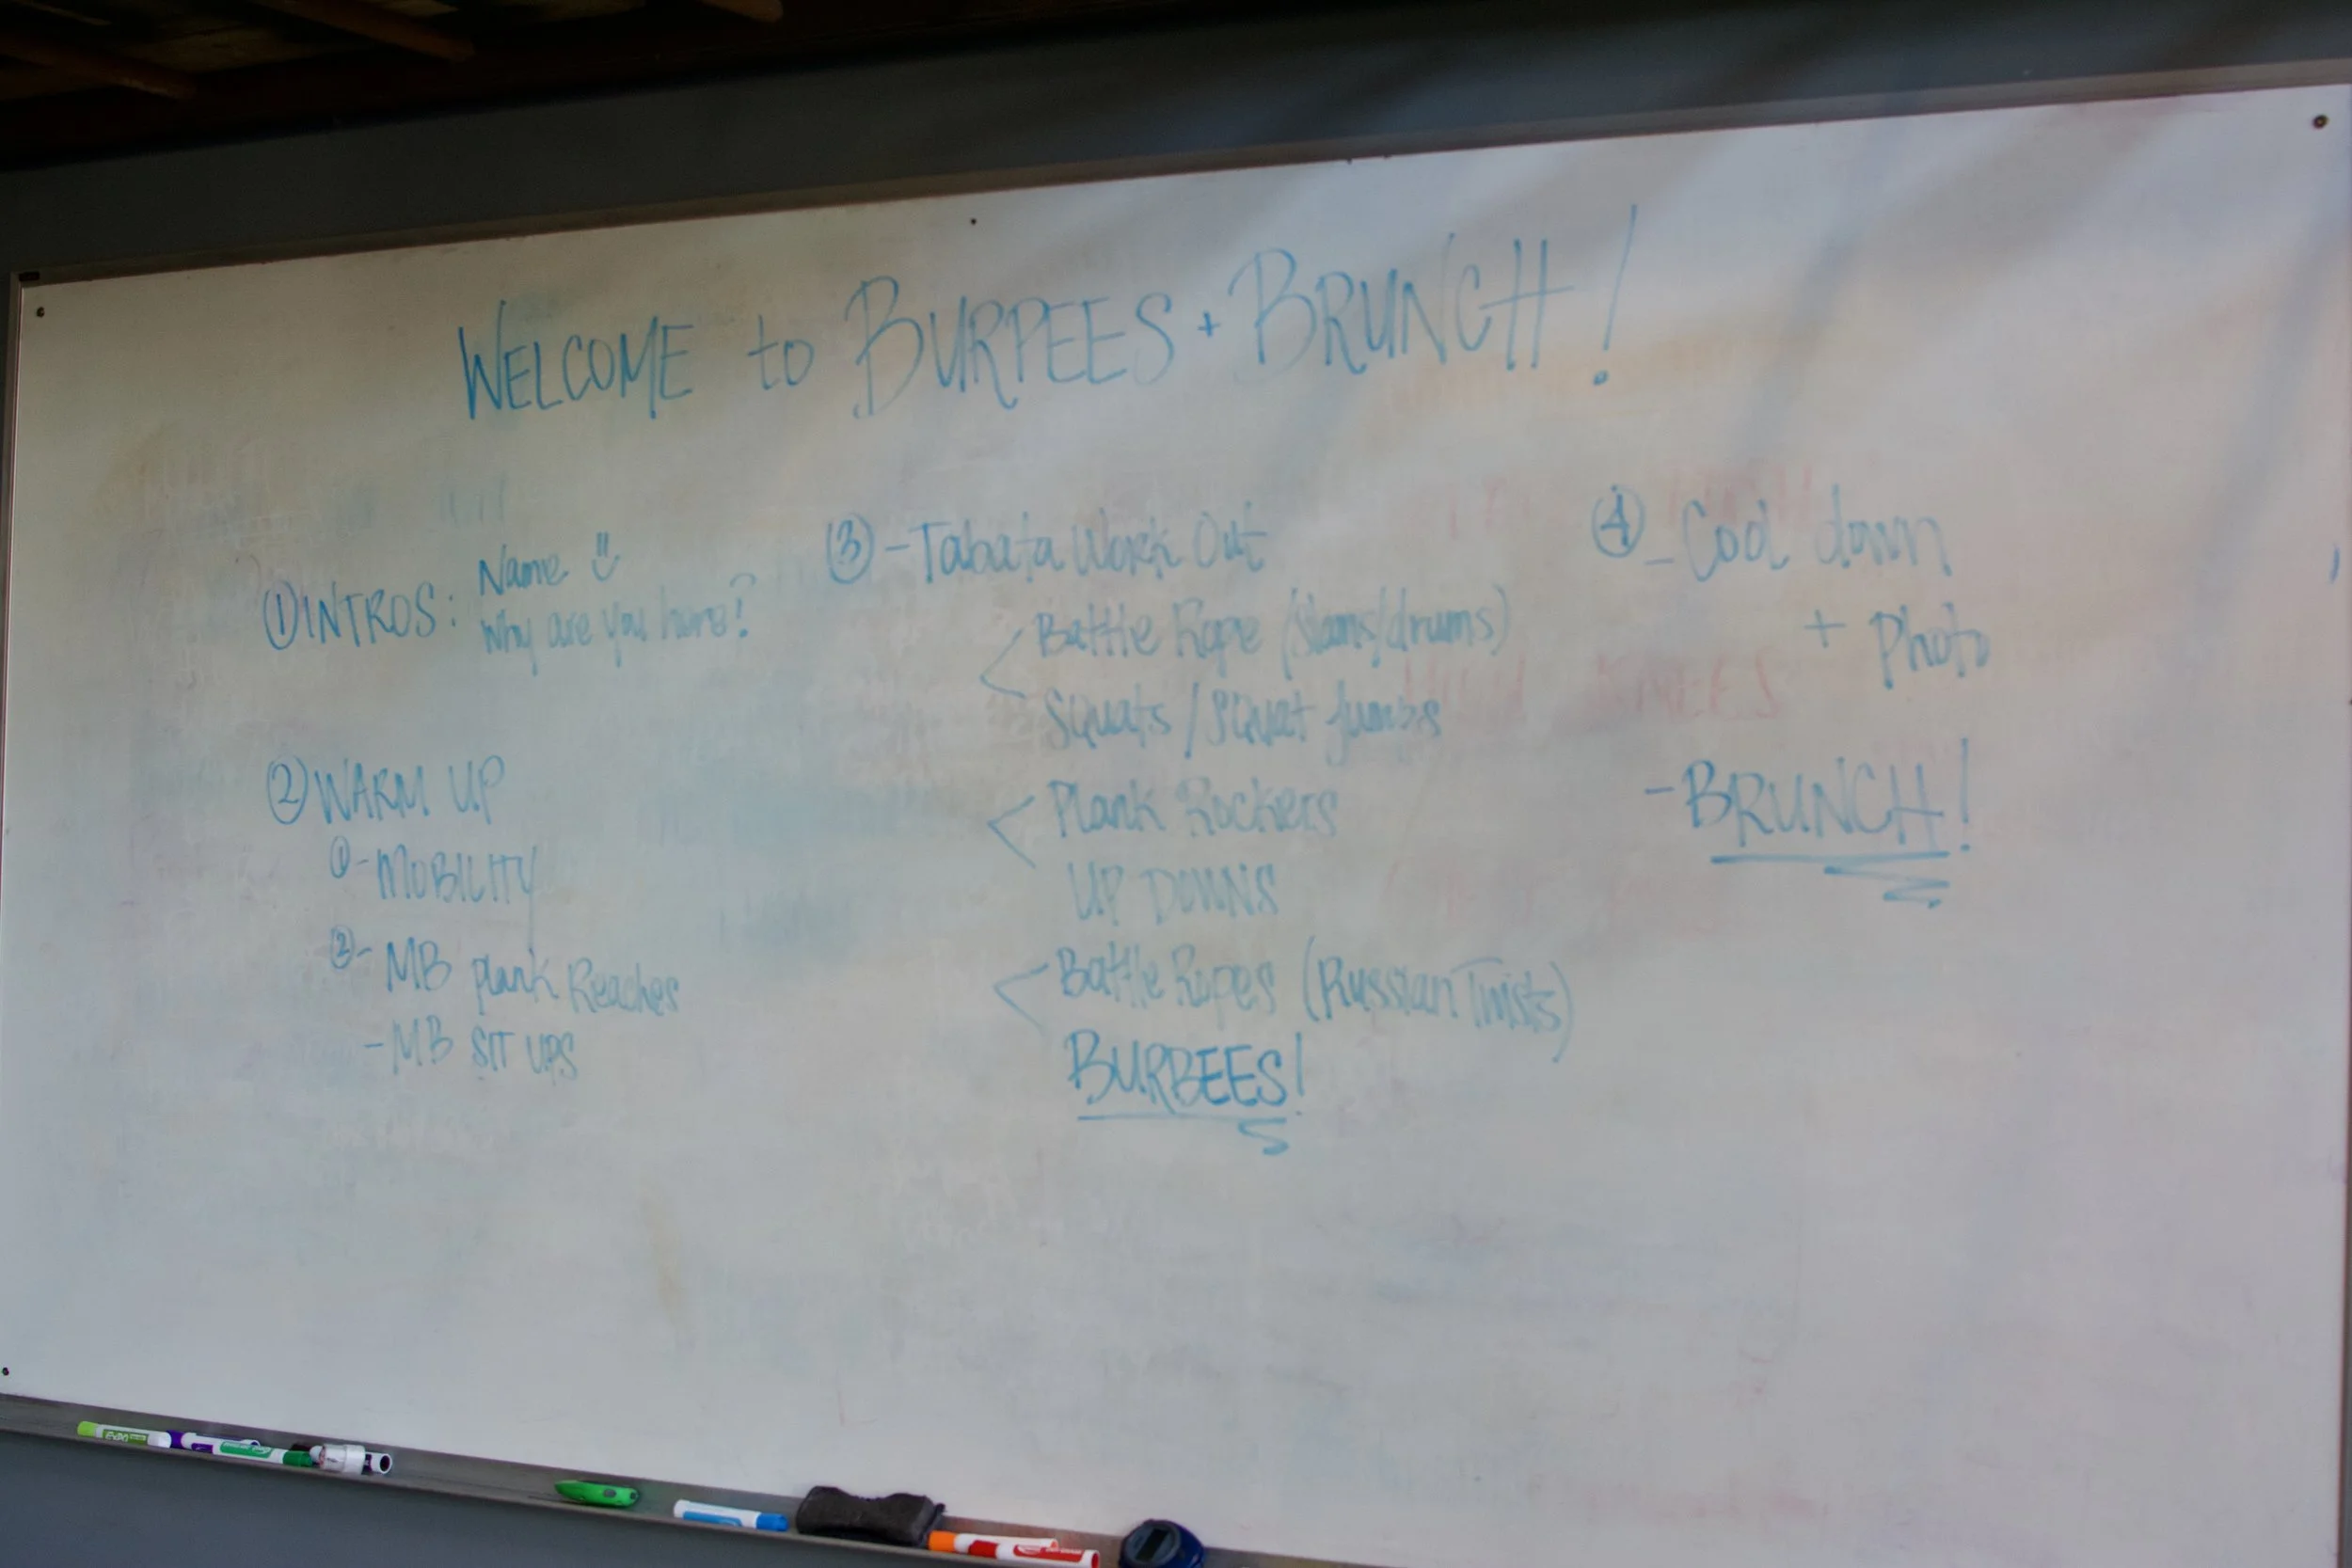 WELCOME to BURPEES + BRUNCH!
① INTROS: Name
Why are you here?
② WARM UP
①- MOBILITY
②- MB plank Reaches
- MB SIT UPS
③ - Tabata Work Out
Battle Rope (slams/drums)
Squats / Squat Jumps
Plank Rockers
UP DOWNS
Battle Ropes (Russian Twists)
BURBEES!
④ - Cool down
+ Photo
- BRUNCH!
KNEES
EXPO